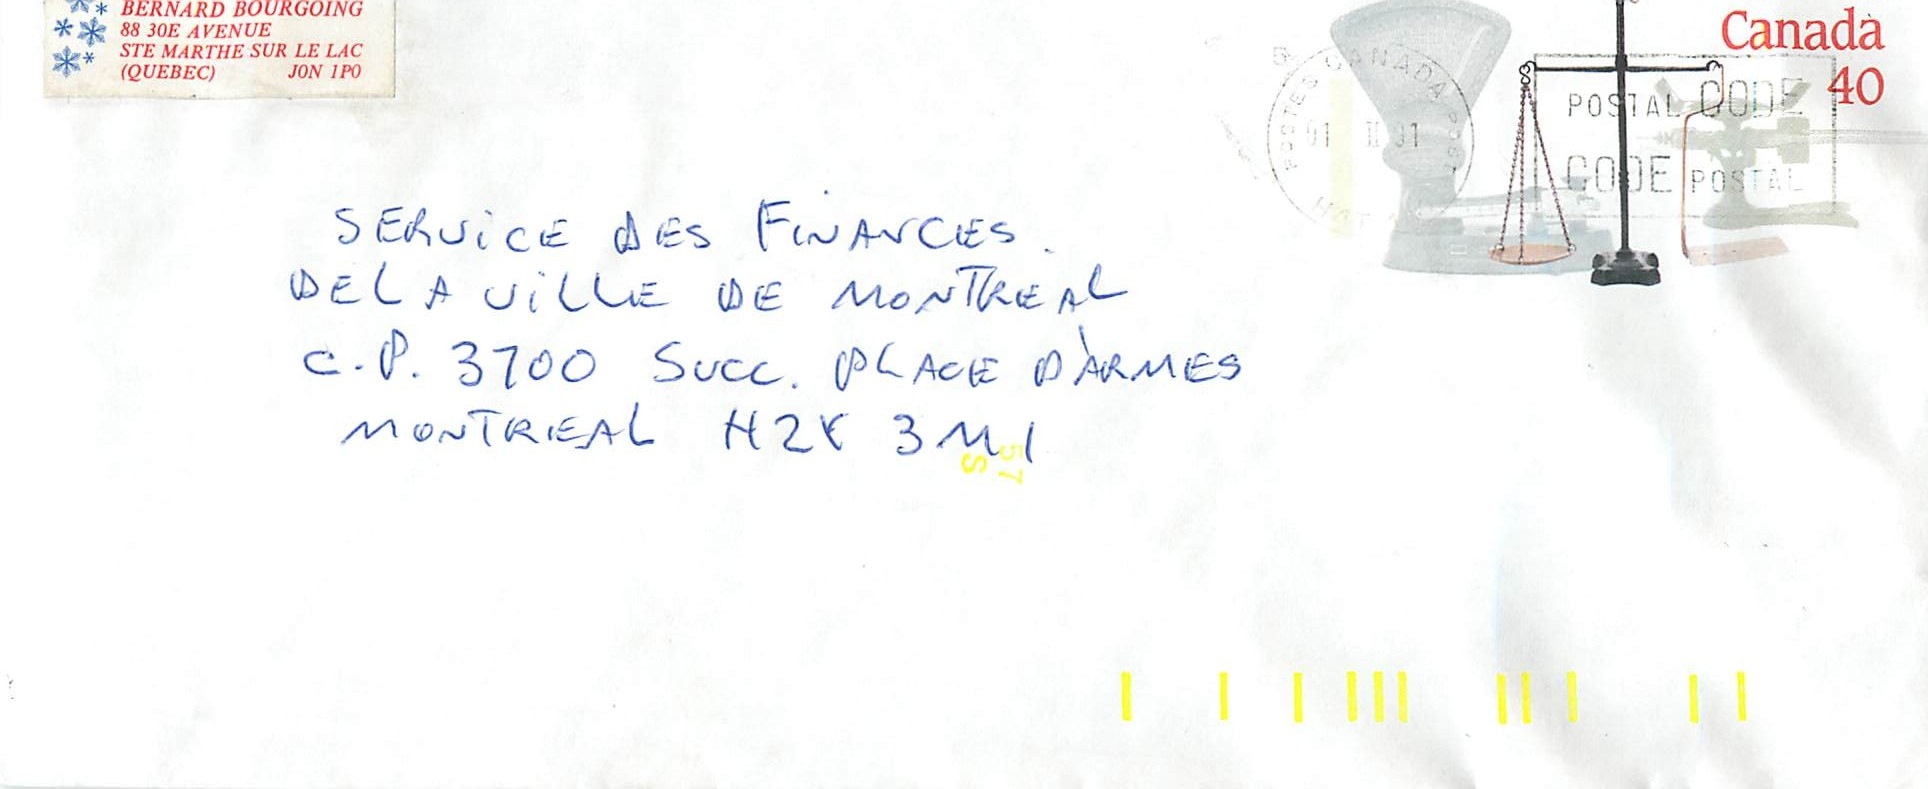 BERNARD BOURGOING
88 30E AVENUE
STE MARTHE SUR LE LAC
(QUEBEC) JON 1PO
Canada
40
POSTES CANADA POST
01 II 91
POSTAL CODE
CODE POSTAL
SERViCE DES FiNANCES.
DE LA ViLLE DE MONTREAL
C.P. 3700 SUCC. PLACE D'ARMES
MONTREAL H2Y 3M1
57
S